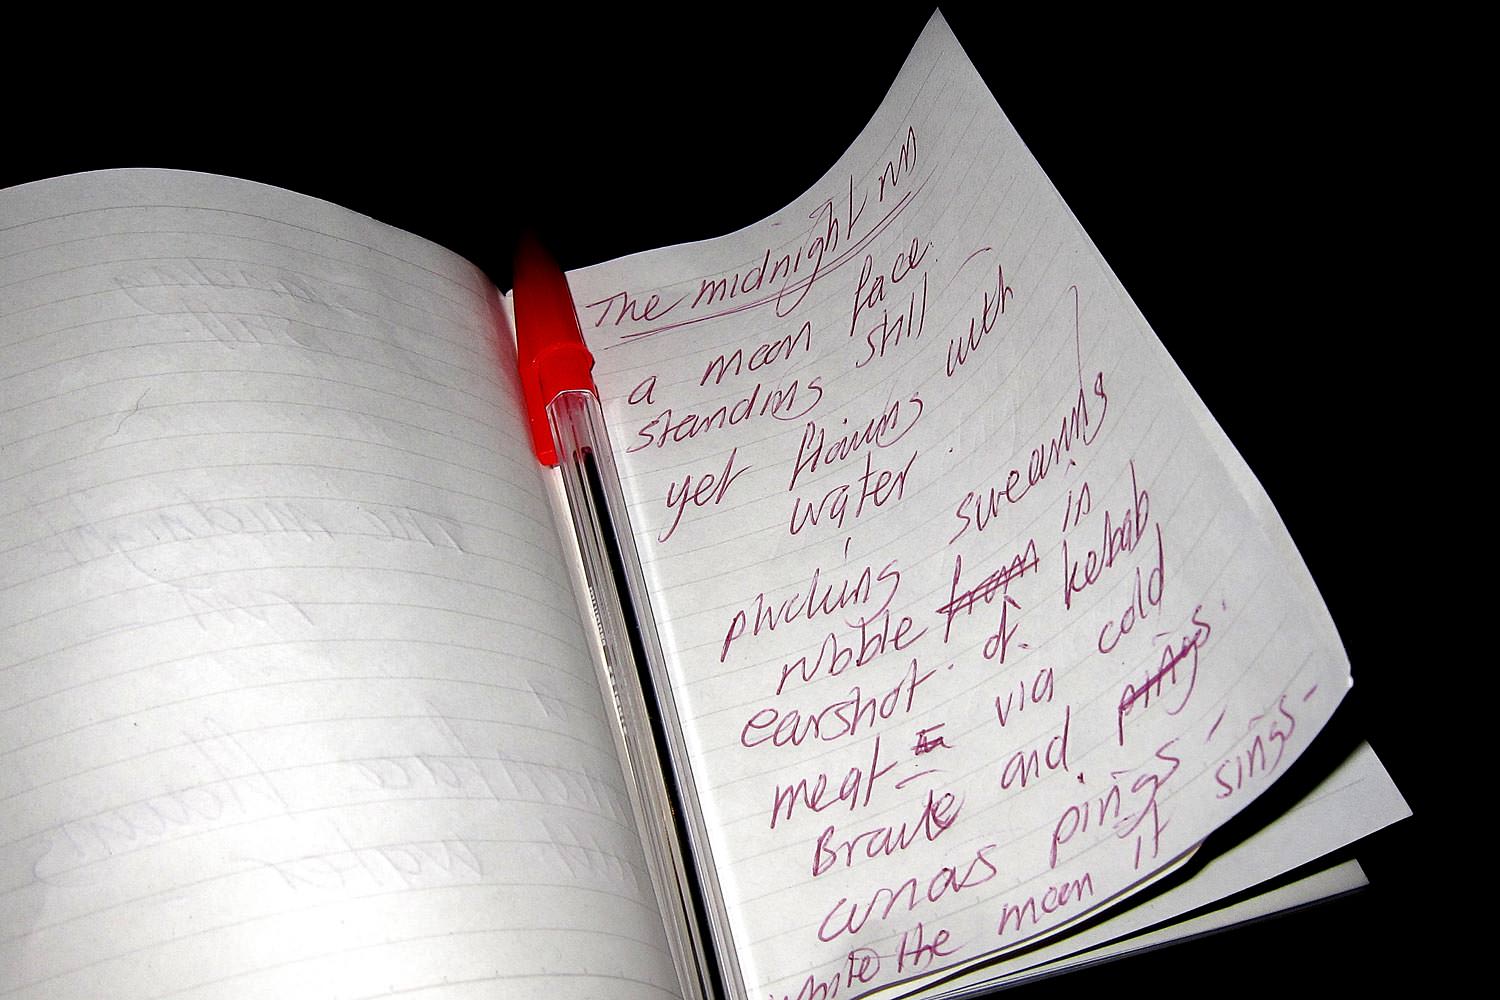 The midnight run
a moon face
standing still
yet flowing with
water.
plucking swearing
rubble from in
earshot of kebab
meat via cold
and pings.
curious pings -
the moon it sings -